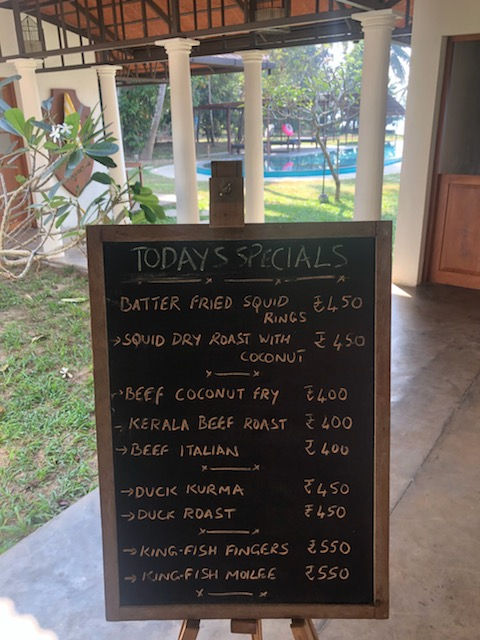 TODAYS SPECIALS
BATTER FRIED SQUID ₹450
RINGS
→SQUID DRY ROAST WITH ₹450
COCONUT
→BEEF COCONUT FRY ₹400
→KERALA BEEF ROAST ₹400
→BEEF ITALIAN ₹400
→DUCK KURMA ₹450
→DUCK ROAST ₹450
→KING-FISH FINGERS ₹550
→KING-FISH MOILEE ₹550